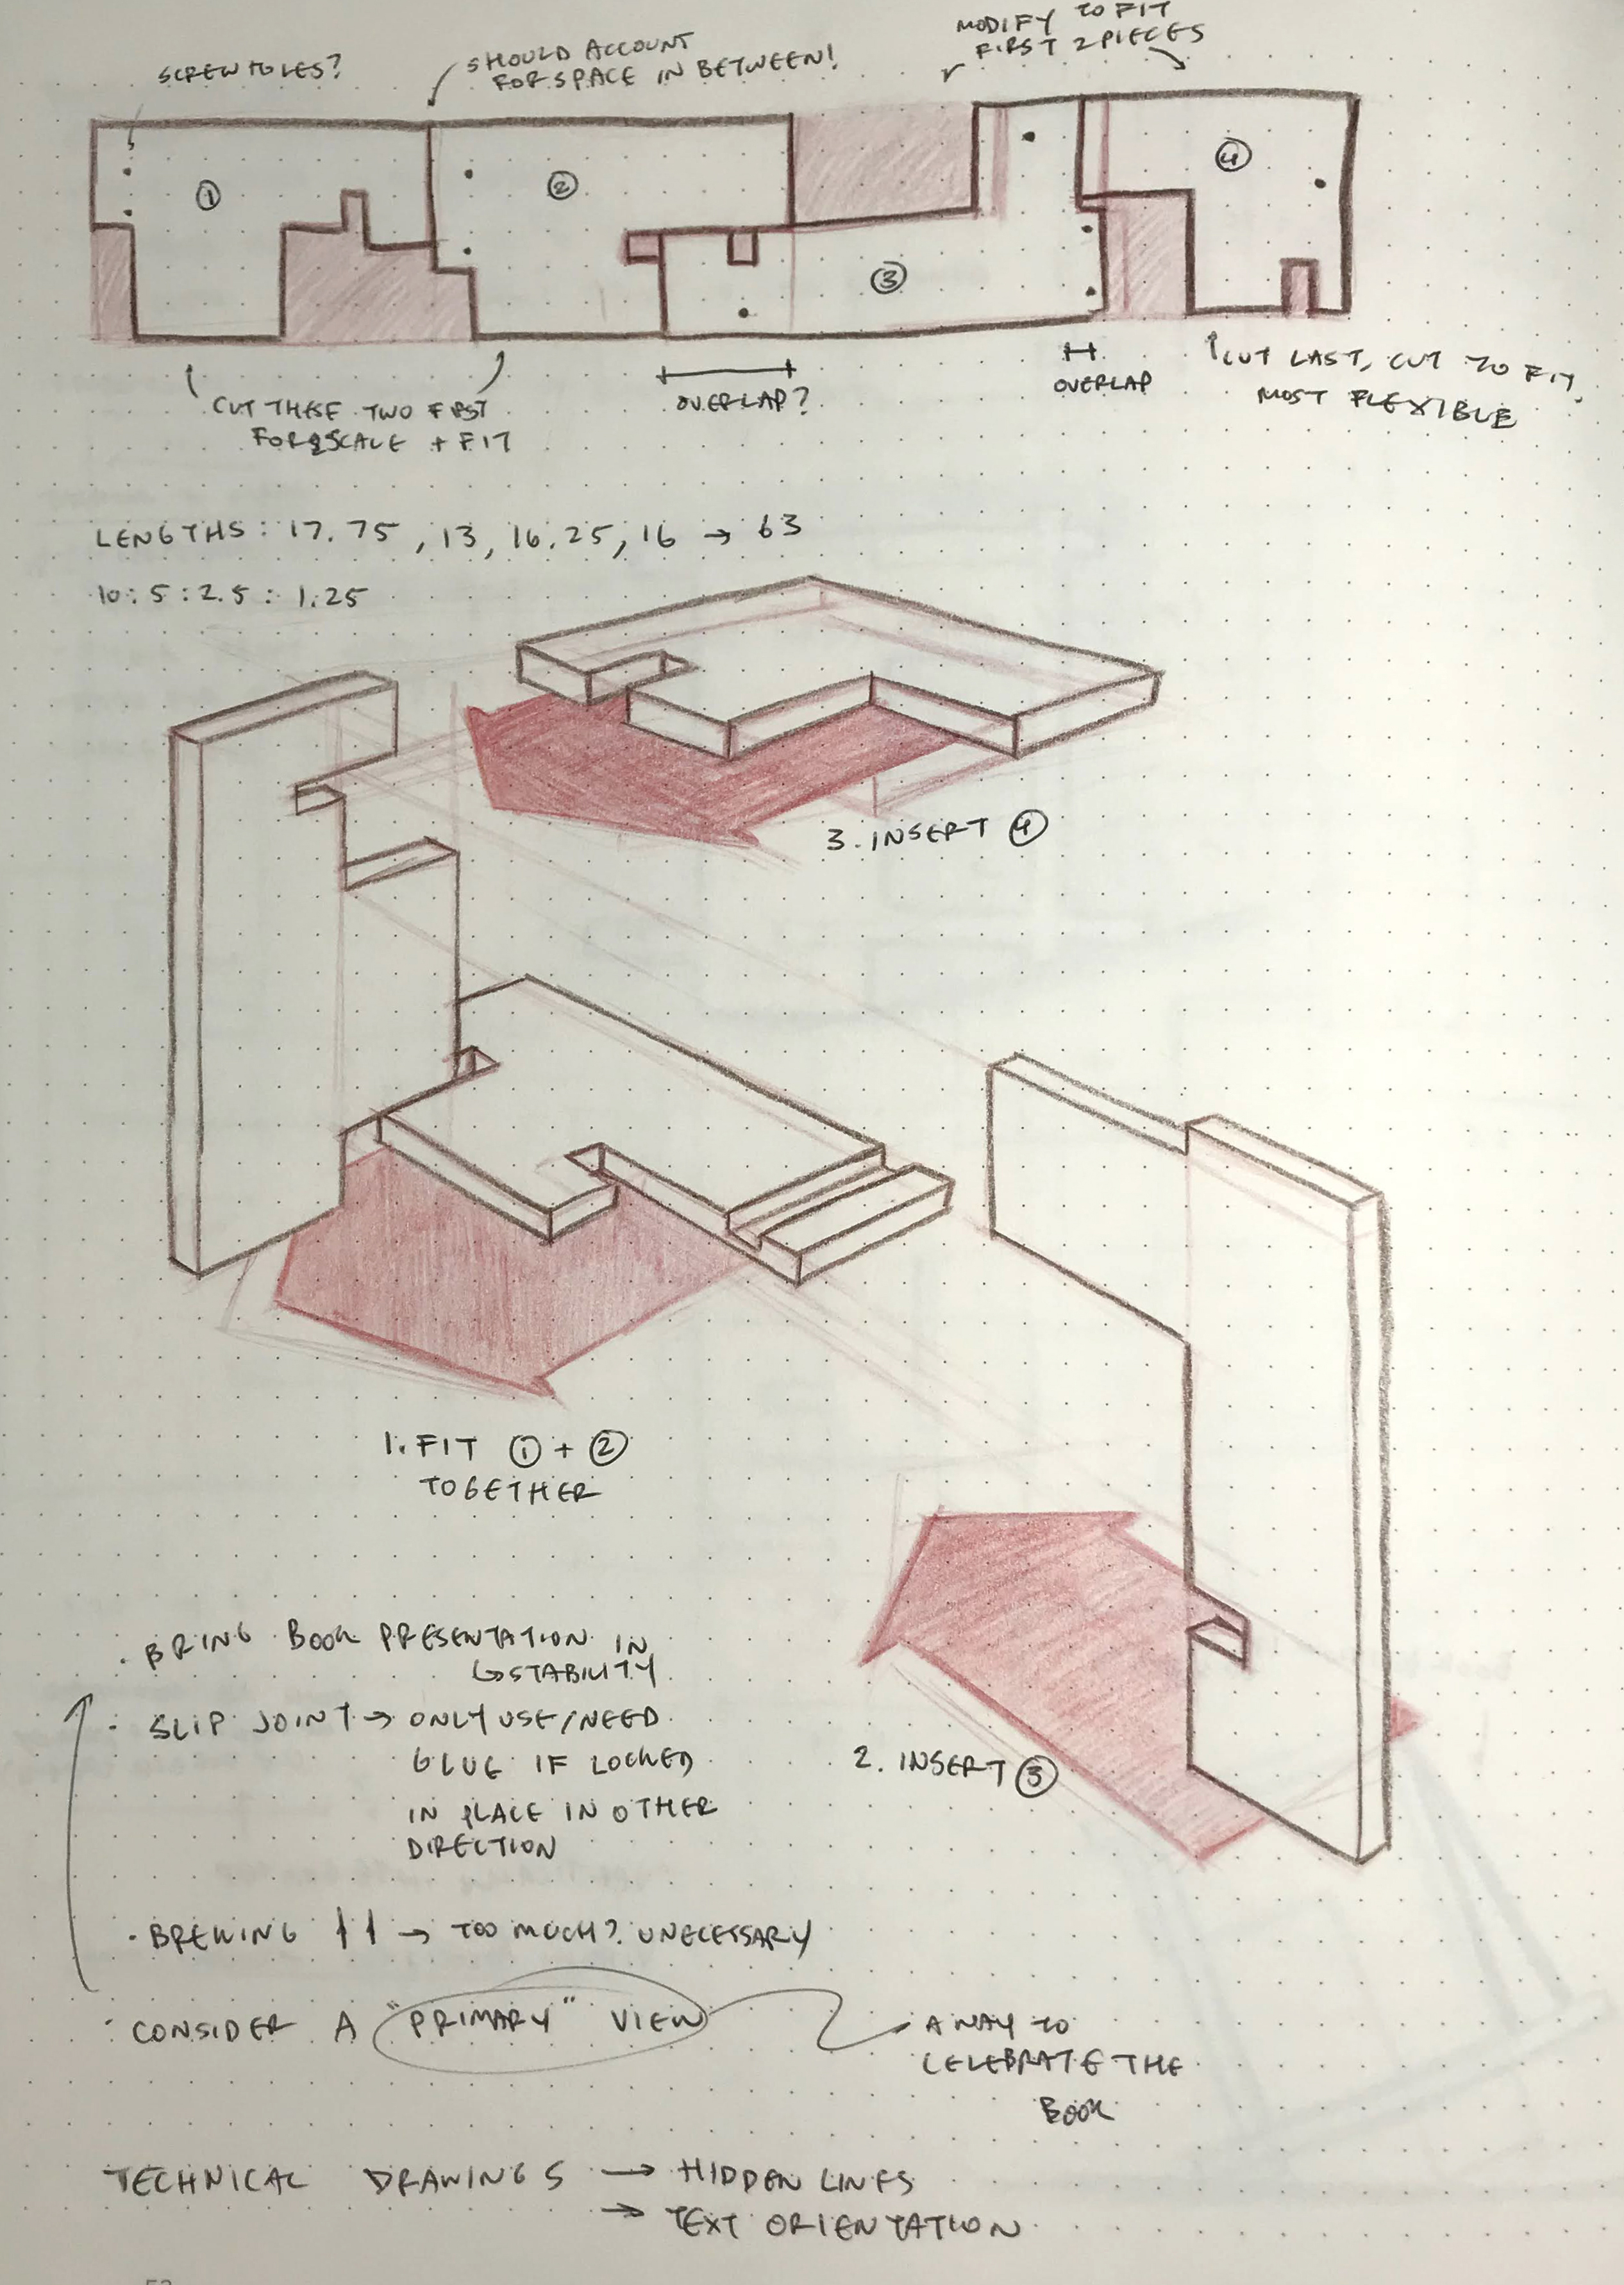 SCREW HOLES?
SHOULD ACCOUNT
FOR SPACE IN BETWEEN!
MODIFY TO FIT
FIRST 2 PIECES
1
2
3
4
CUT THESE TWO FIRST
FOR SCALE + FIT
OVERLAP?
OVERLAP
CUT LAST, CUT TO FIT,
MOST FLEXIBLE
LENGTHS: 17.75, 13, 16.25, 16 → 63
10:5:2.5:1.25
3. INSERT 4
1. FIT 1 + 2
TOGETHER
2. INSERT 3
· BRING BOOK PRESENTATION IN
↳ STABILITY
· SLIP JOINT → ONLY USE/NEED
GLUE IF LOCKED
IN PLACE IN OTHER
DIRECTION
· BREWING → TOO MUCH? UNECESSARY
· CONSIDER A "PRIMARY" VIEW
A WAY TO
CELEBRATE THE
BOOK
TECHNICAL DRAWINGS → HIDDEN LINES
→ TEXT ORIENTATION